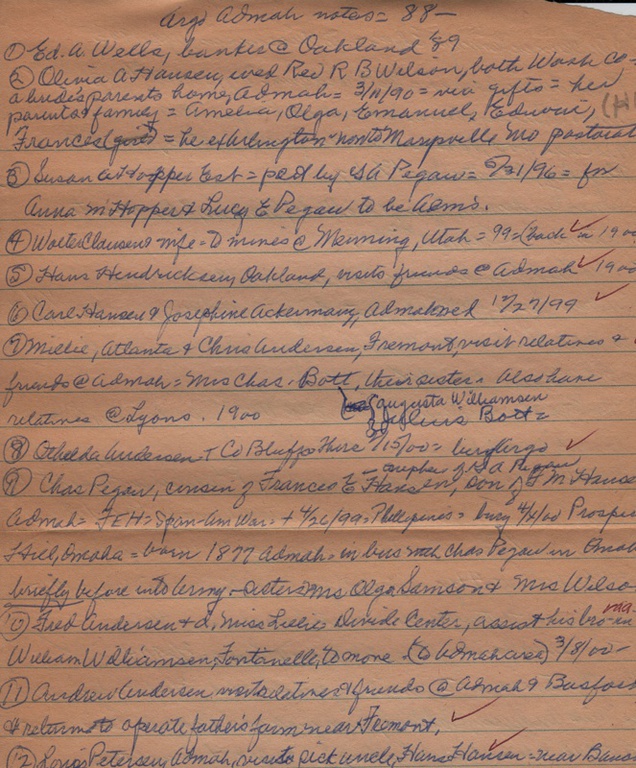 Argo Admah notes = 88 -
① Ed. A. Wells, banker @ Oakland 89
② Olivia A Hansen, wed Rev R B Wilson, both Wash Co =
a bride's parents home, Admah = 3/11/90 = via gifts = her
parents & family = Amelia, Olga, Emanuel, Edward, (H
Frances (girl) = he ex Arlington now to Maryville Mo pastorat
③ Susan Hopper Est = petd by S A Pegau = 5/31/96 = for
Anna M Hopper & Lucy E Pegau to be Adm's.
④ Walter Clausen & wife = to mines @ Utah = 99 = (back in 190
⑤ Hans Hendricksen, Oakland, visits friends @ Admah 190
⑥ Carl Hansen & Josephine Ackermann, Admah wed 12/27/99
⑦ Millie, Atlanta & Chris Andersen, Fremont, visit relatives &
friends @ Admah = Mrs Chas. Bott, their sister. Also have
{Augusta Williamsen
relatives @ Lyons. 1900 Julius Bott =
⑧ Othelda Andersen + Co Bluffs Thurs 2/15/00 = bury Argo
nephew of S A Pegau
⑨ Chas Pegau, cousin of Frances E Hansen, son of F M Hanse
Admah = FEH = Span-Am War = + 4/26/99 = Phillipines = bury 4/4/00 Prospe
Hill, Omaha = born 1877 Admah = in bus with Chas Pegau in Omah
briefly before into Army - sisters Mrs Olga Samson & Mrs Wilso
⑩ Fred Andersen & d. Miss Lillie = Divide Center, assist his bro-in
William Williamsen, Fontanelle, to move (to Admah area) 3/8/00 -
⑪ Andrew Andersen visits relatives & friends @ Admah &
& return to operate father's farm near Fremont.
⑫ Louis Petersen, Admah, visits sick uncle, Hans Hansen = near Banc